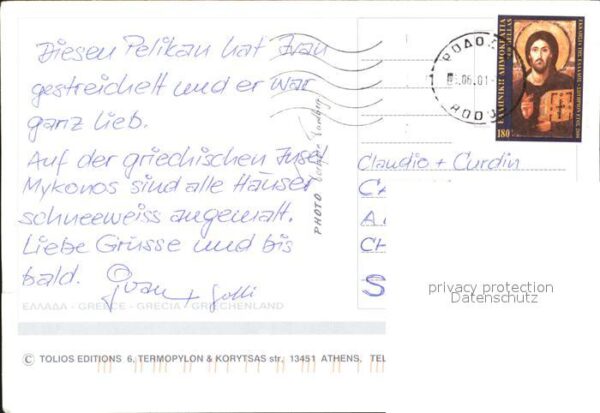 Diesen Pelikan hat Ivan
gestreichelt und er war
ganz lieb.
Auf der griechischen Insel
Mykonos sind alle Häuser
schneeweiss angemalt.
Liebe Grüsse und bis
bald. Ivan +
ΕΛΛΑΔΑ - GREECE - GRECIA - GRIECHENLAND
© TOLIOS EDITIONS 6, TERMOPYLON & KORYTSAS str., 13451 ATHENS, TEL
PHOTO
ΡΟΔΟ
.06.01
RODO
1
ΕΛΛΗΝΙΚΗ ΔΗΜΟΚΡΑΤΙΑ
HELLAS
180
2000
Claudio + Curdin
CH
S
privacy protection
Datenschutz